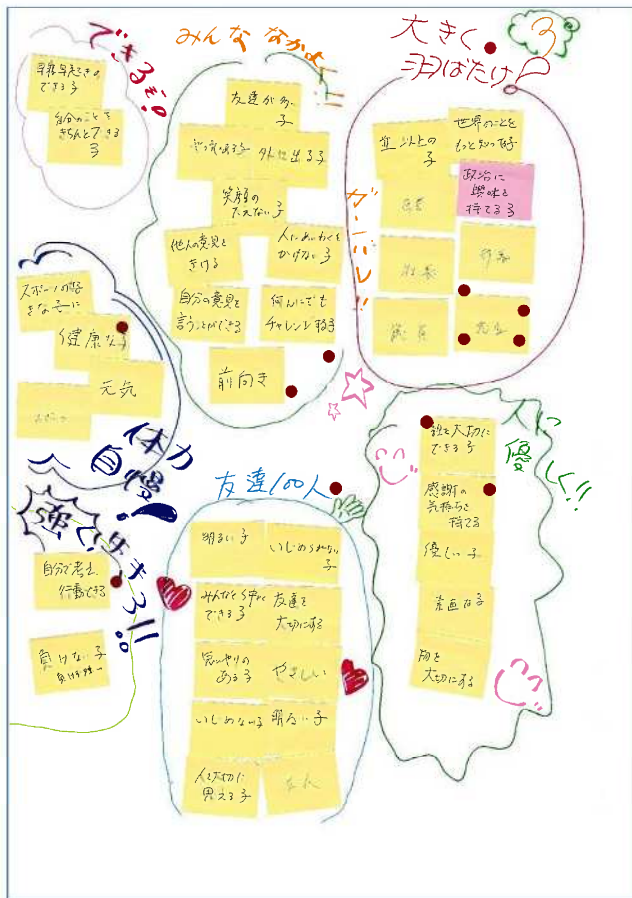 できるぞ!!
早寝早起きの
できる子
自分のことを
きちんとできる
子
みんな なかよく!!
友達が多い
子
外に出る子
笑顔の
たえない子
他人の意見を
きける
人にめいわくを
かけない子
自分の意見を
言うことができる
何んにでも
チャレンジする子
前向き
3
大きく
羽ばたけ!
ガンバレ!!
並以上の
子
世界のことを
もっと知って好
政治に
興味を
持てる子
スポーツの好
きな子に
健康な子
元気
体力
自慢!
強く生きろ!!
自分で考え、
行動できる
負けない子
友達100人
明るい子
いじめられない
子
みんなと仲よく
できる子
友達を
大切にする
思いやりの
ある子
やさしい
いじめない子
明るい子
人を大切に
思える子
人に
優しく!!
親を大切に
できる子
感謝の
気持ちを
持てる
優しい子
素直な子
大切にする